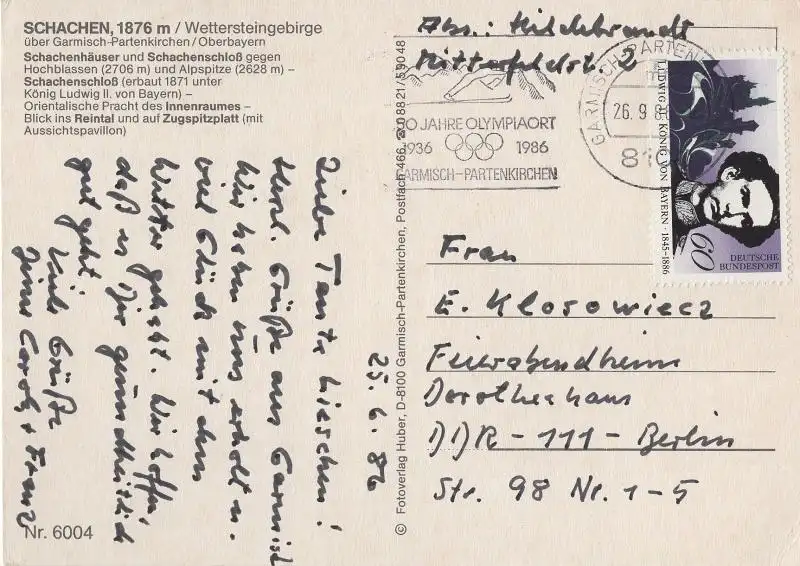 SCHACHEN, 1876 m / Wettersteingebirge
über Garmisch-Partenkirchen/Oberbayern
Schachenhäuser und Schachenschloß gegen
Hochblassen (2706 m) und Alpspitze (2628 m) –
Schachenschloß (erbaut 1871 unter
König Ludwig II. von Bayern) –
Orientalische Pracht des Innenraumes –
Blick ins Reintal und auf Zugspitzplatt (mit
Aussichtspavillon)
Liebe Tante Lieschen!
Herzl. Grüße aus Garmisch
Wir haben uns erholt u.
viel Glück mit dem
Wetter gehabt. Wir hoffen,
daß es Dir gesundheitlich
gut geht.
Viele Grüße
Franz
25.6.86
Nr. 6004
© Fotoverlag Huber, D-8100 Garmisch-Partenkirchen, Postfach 466, ☎ 08821/59048
Abs.: Hildebrandt
2
50 JAHRE OLYMPIAORT
1936 1986
GARMISCH-PARTENKIRCHEN
GARMISCH-PARTEN
26.9.8
LUDWIG II. KÖNIG VON BAYERN · 1845-1886
60
DEUTSCHE
BUNDESPOST
Frau
E. Klosowiecz
Feierabendheim
Dorotheahaus
DDR - 111 - Berlin
Str. 98 Nr. 1-5